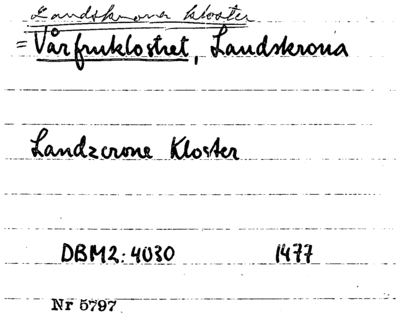 Landskrona kloster
= Vårfruklostret, Landskrona
Landzcrone Kloster
DBM2: 4030 1477
Nr 5797